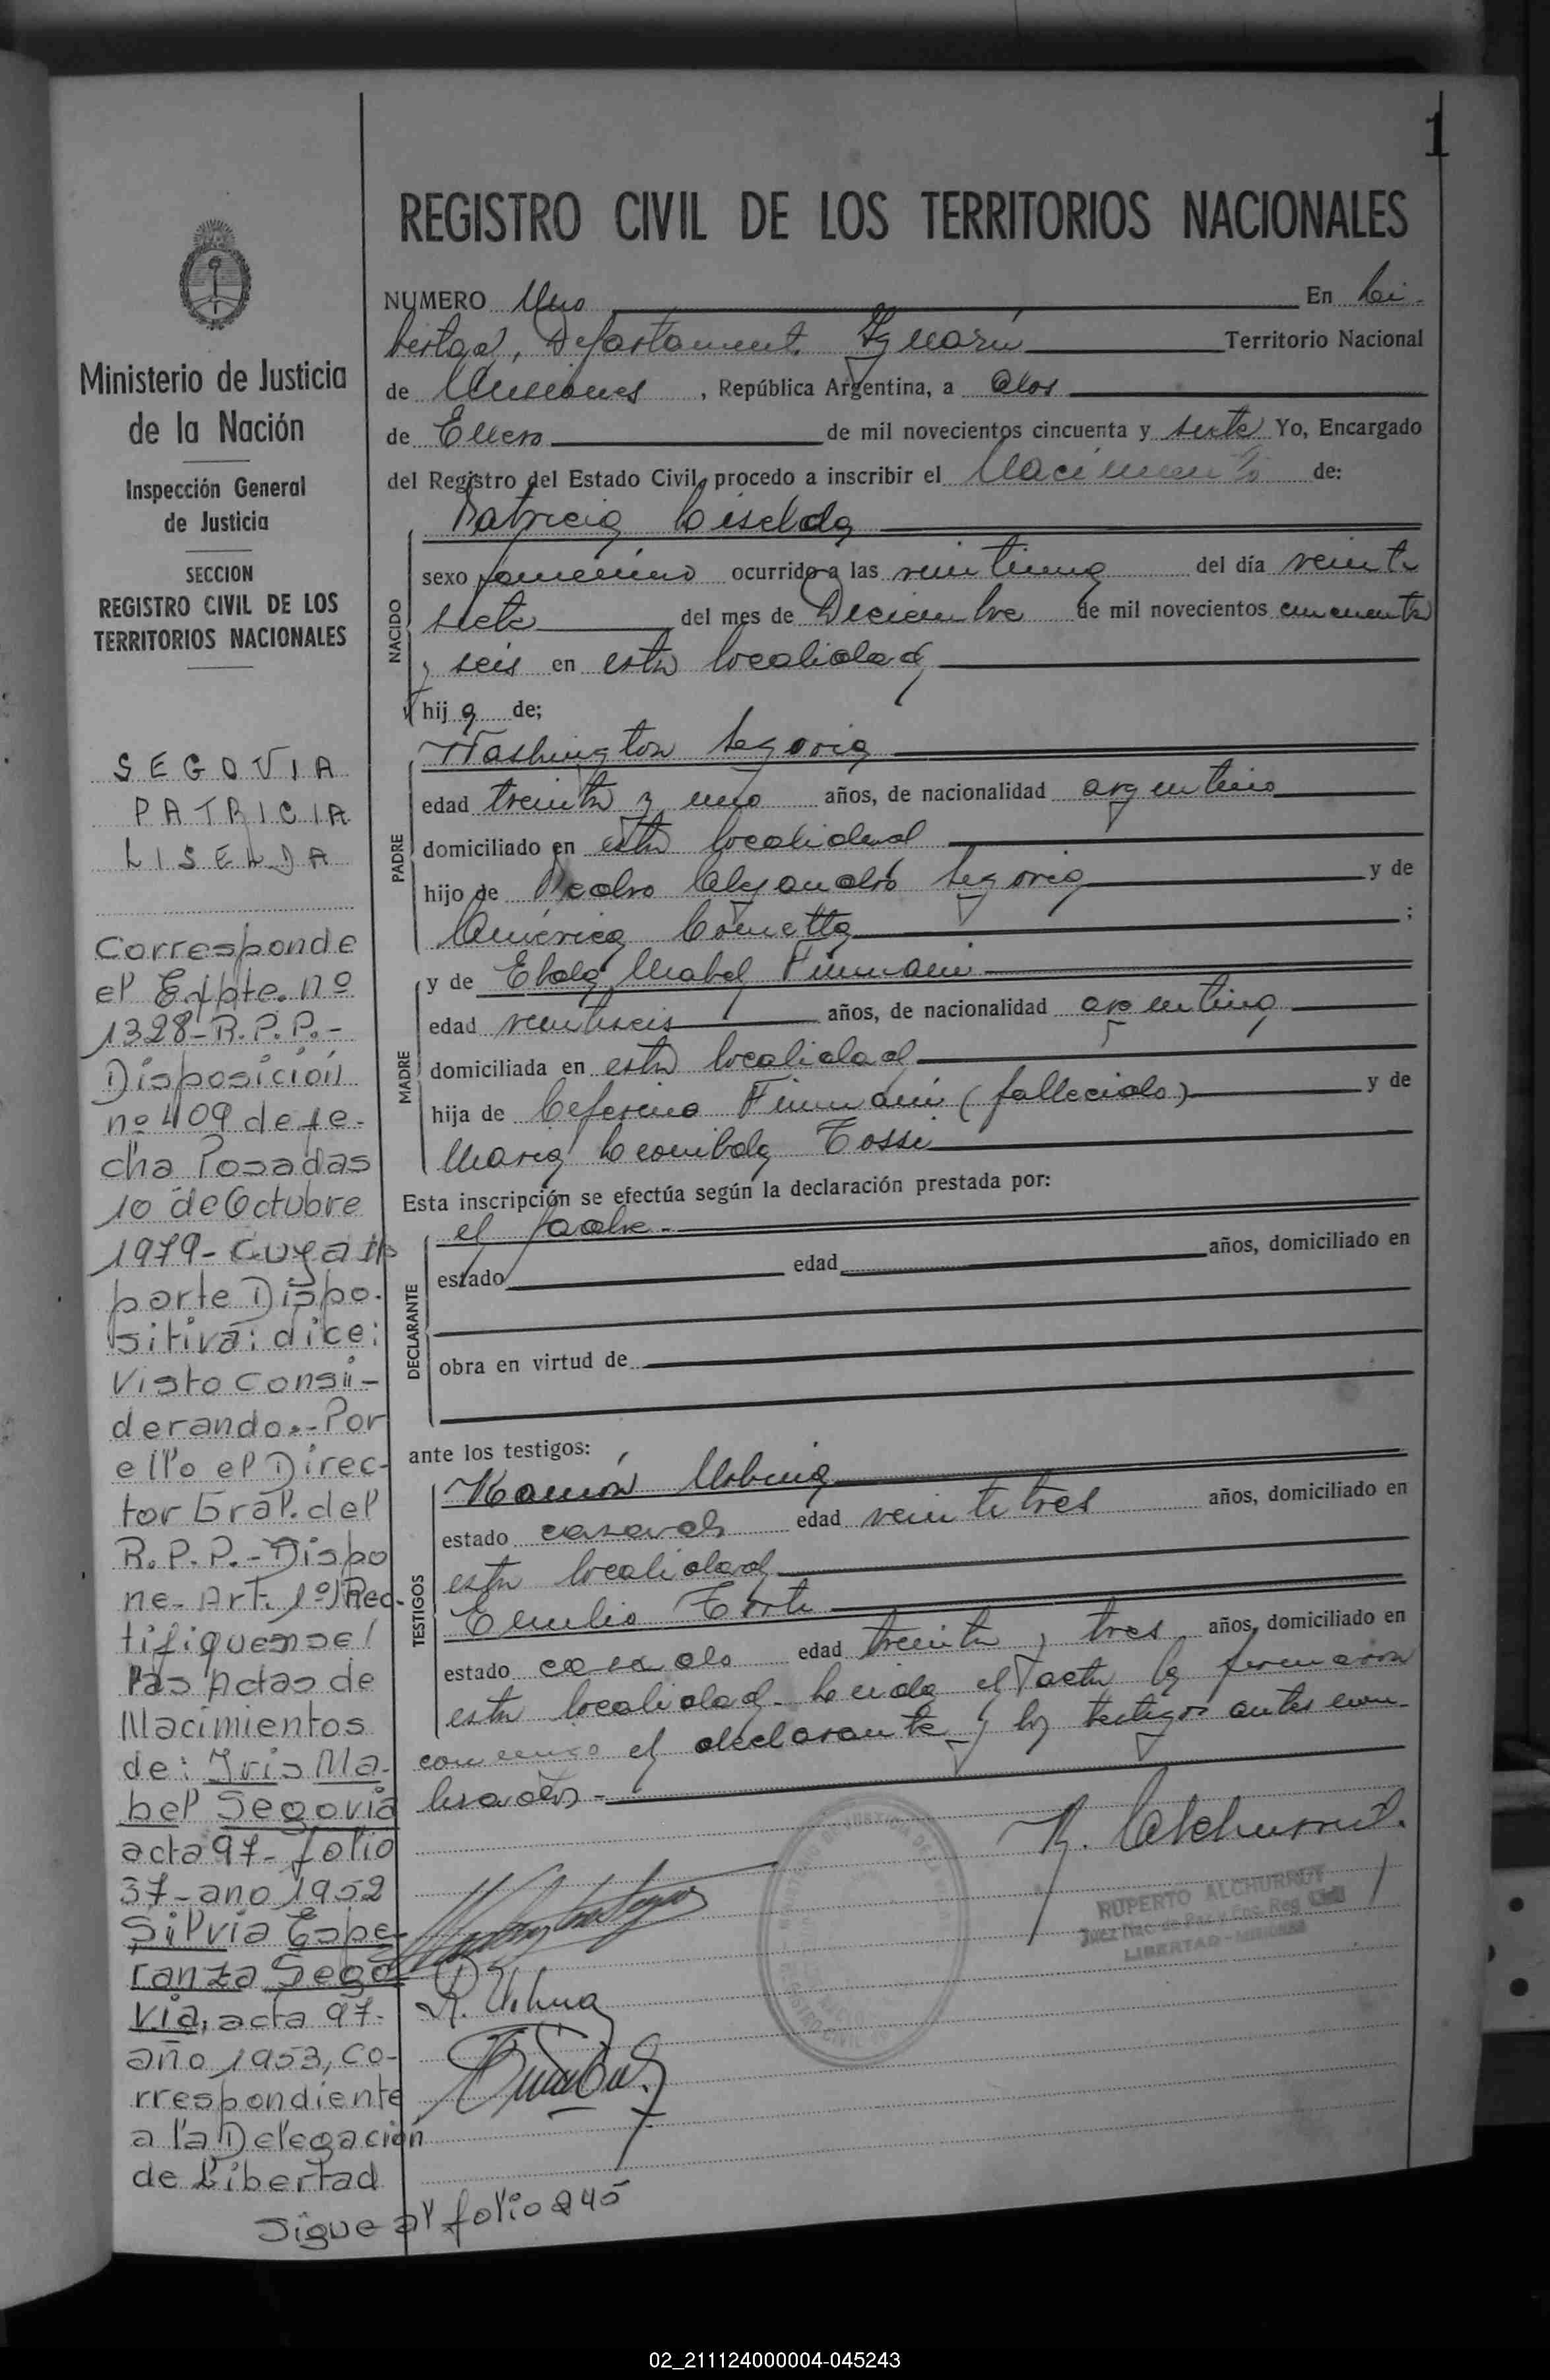 1
REGISTRO CIVIL DE LOS TERRITORIOS NACIONALES
NUMERO Uno En Li-
bertad, Departament. Iguazú Territorio Nacional
de Misiones , República Argentina, a dos
de Enero de mil novecientos cincuenta y siete Yo, Encargado
del Registro del Estado Civil, procedo a inscribir el Nacimiento de:
Patricia Liselda
NACIDO
sexo femenino ocurrido a las veintiuna del día veinti
siete del mes de Diciembre de mil novecientos cincuenta
y seis en esta localidad
hij a de;
PADRE
Washington Segovia
edad treinta y uno años, de nacionalidad argentino
domiciliado en esta localidad
hijo de Pedro Alejandro Segovia y de
América Cometta ;
MADRE
y de Elda Mabel
edad veintiseis años, de nacionalidad argentina
domiciliada en esta localidad
hija de Ceferino (fallecido) y de
María Leonilda Tossi
Esta inscripción se efectúa según la declaración prestada por:
DECLARANTE
el padre.-
estado edad años, domiciliado en
obra en virtud de
ante los testigos:
TESTIGOS
Ramón
estado casado edad veintitres años, domiciliado en
esta localidad
Emilio
estado casado edad treinta y tres años, domiciliado en
esta localidad. Leida el acta la firmaron
conmigo el declarante y los testigos antes nom-
brados.-
R. Alchurrut.
RUPERTO ALCHURRUT
Juez Nac. de Paz y Enc. Reg. Civil
LIBERTAD - MISIONES
Ministerio de Justicia
de la Nación
Inspección General
de Justicia
SECCION
REGISTRO CIVIL DE LOS
TERRITORIOS NACIONALES
SEGOVIA
PATRICIA
LISELDA
Corresponde
el Expte. nº
1328-R.P.P.-
Disposición
nº 409 de fe-
cha Posadas
10 de Octubre
1979- Cuya
parte Dispo-
sitiva: dice:
Visto Consi-
derando.-Por
ello el Direc-
tor Gral. del
R.P.P.-Dispo
ne- Art. 1º) Rec-
tifiquense
las Actas de
Nacimientos
de: Iris Ma-
bel Segovia
acta 97- folio
37- año 1952
Silvia Espe-
ranza Sego
via, acta 97-
año 1953, co-
rrespondiente
a la Delegación
de Libertad
Sigue al folio 245
02_211124000004-045243